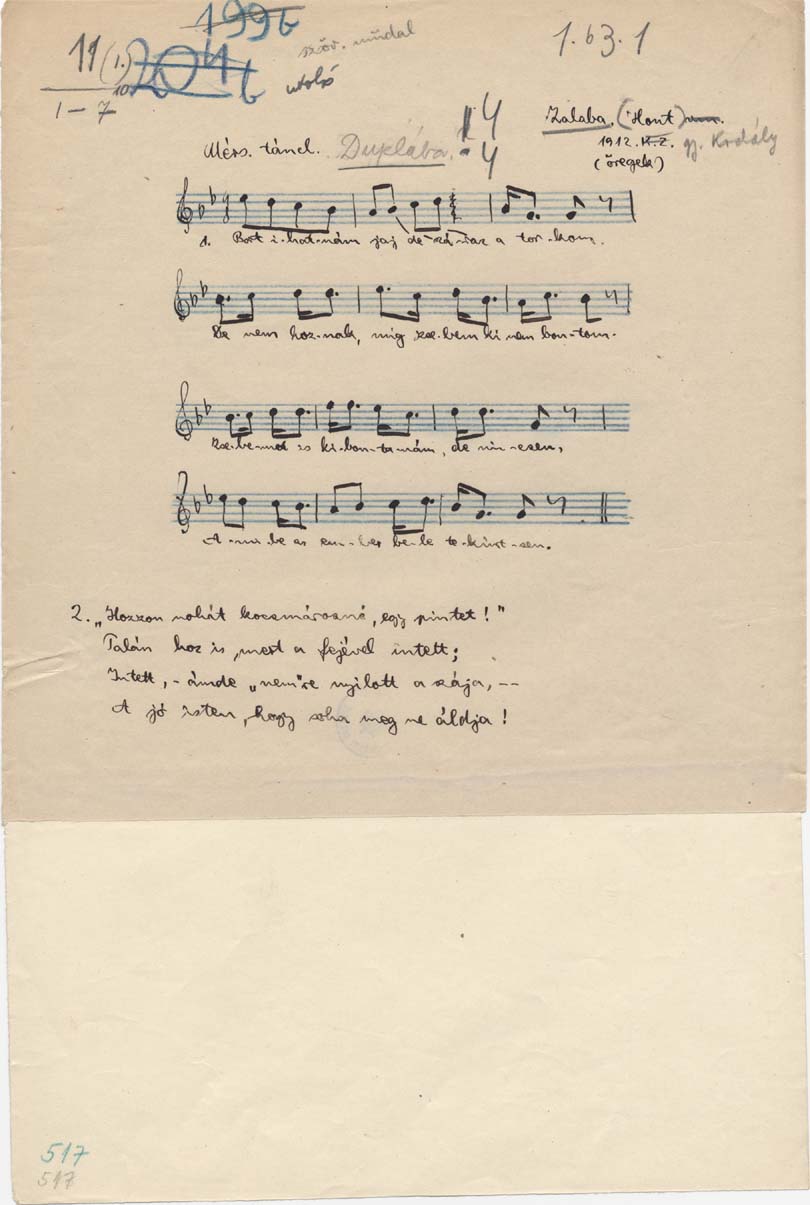 199b
szöv. műdal
1.63.1
11 (1.)
204b
utolsó
10
1–7
! 4
: 4
Zalaba. (Hont)
Mérs. táncl. Duplába.
1912. K.Z. gy. Kodály
(öregek)
1. Bort i-hat-nám jaj de szá-raz a tor-kom.
De nem hoz-nak, míg zse-bem ki nem bon-tom.
Zse-be-met is ki-bon-ta-nám, de nin-csen,
A-mi-be az em-ber be-le te-kint-sen.
2. „Hozzon nohát kocsmárosné, egy pintet!"
Talán hoz is, mert a fejével intett;
Intett, - ámde „nem"re nyilott a szája, --
A jó isten, hogy soha meg ne áldja!
517
517